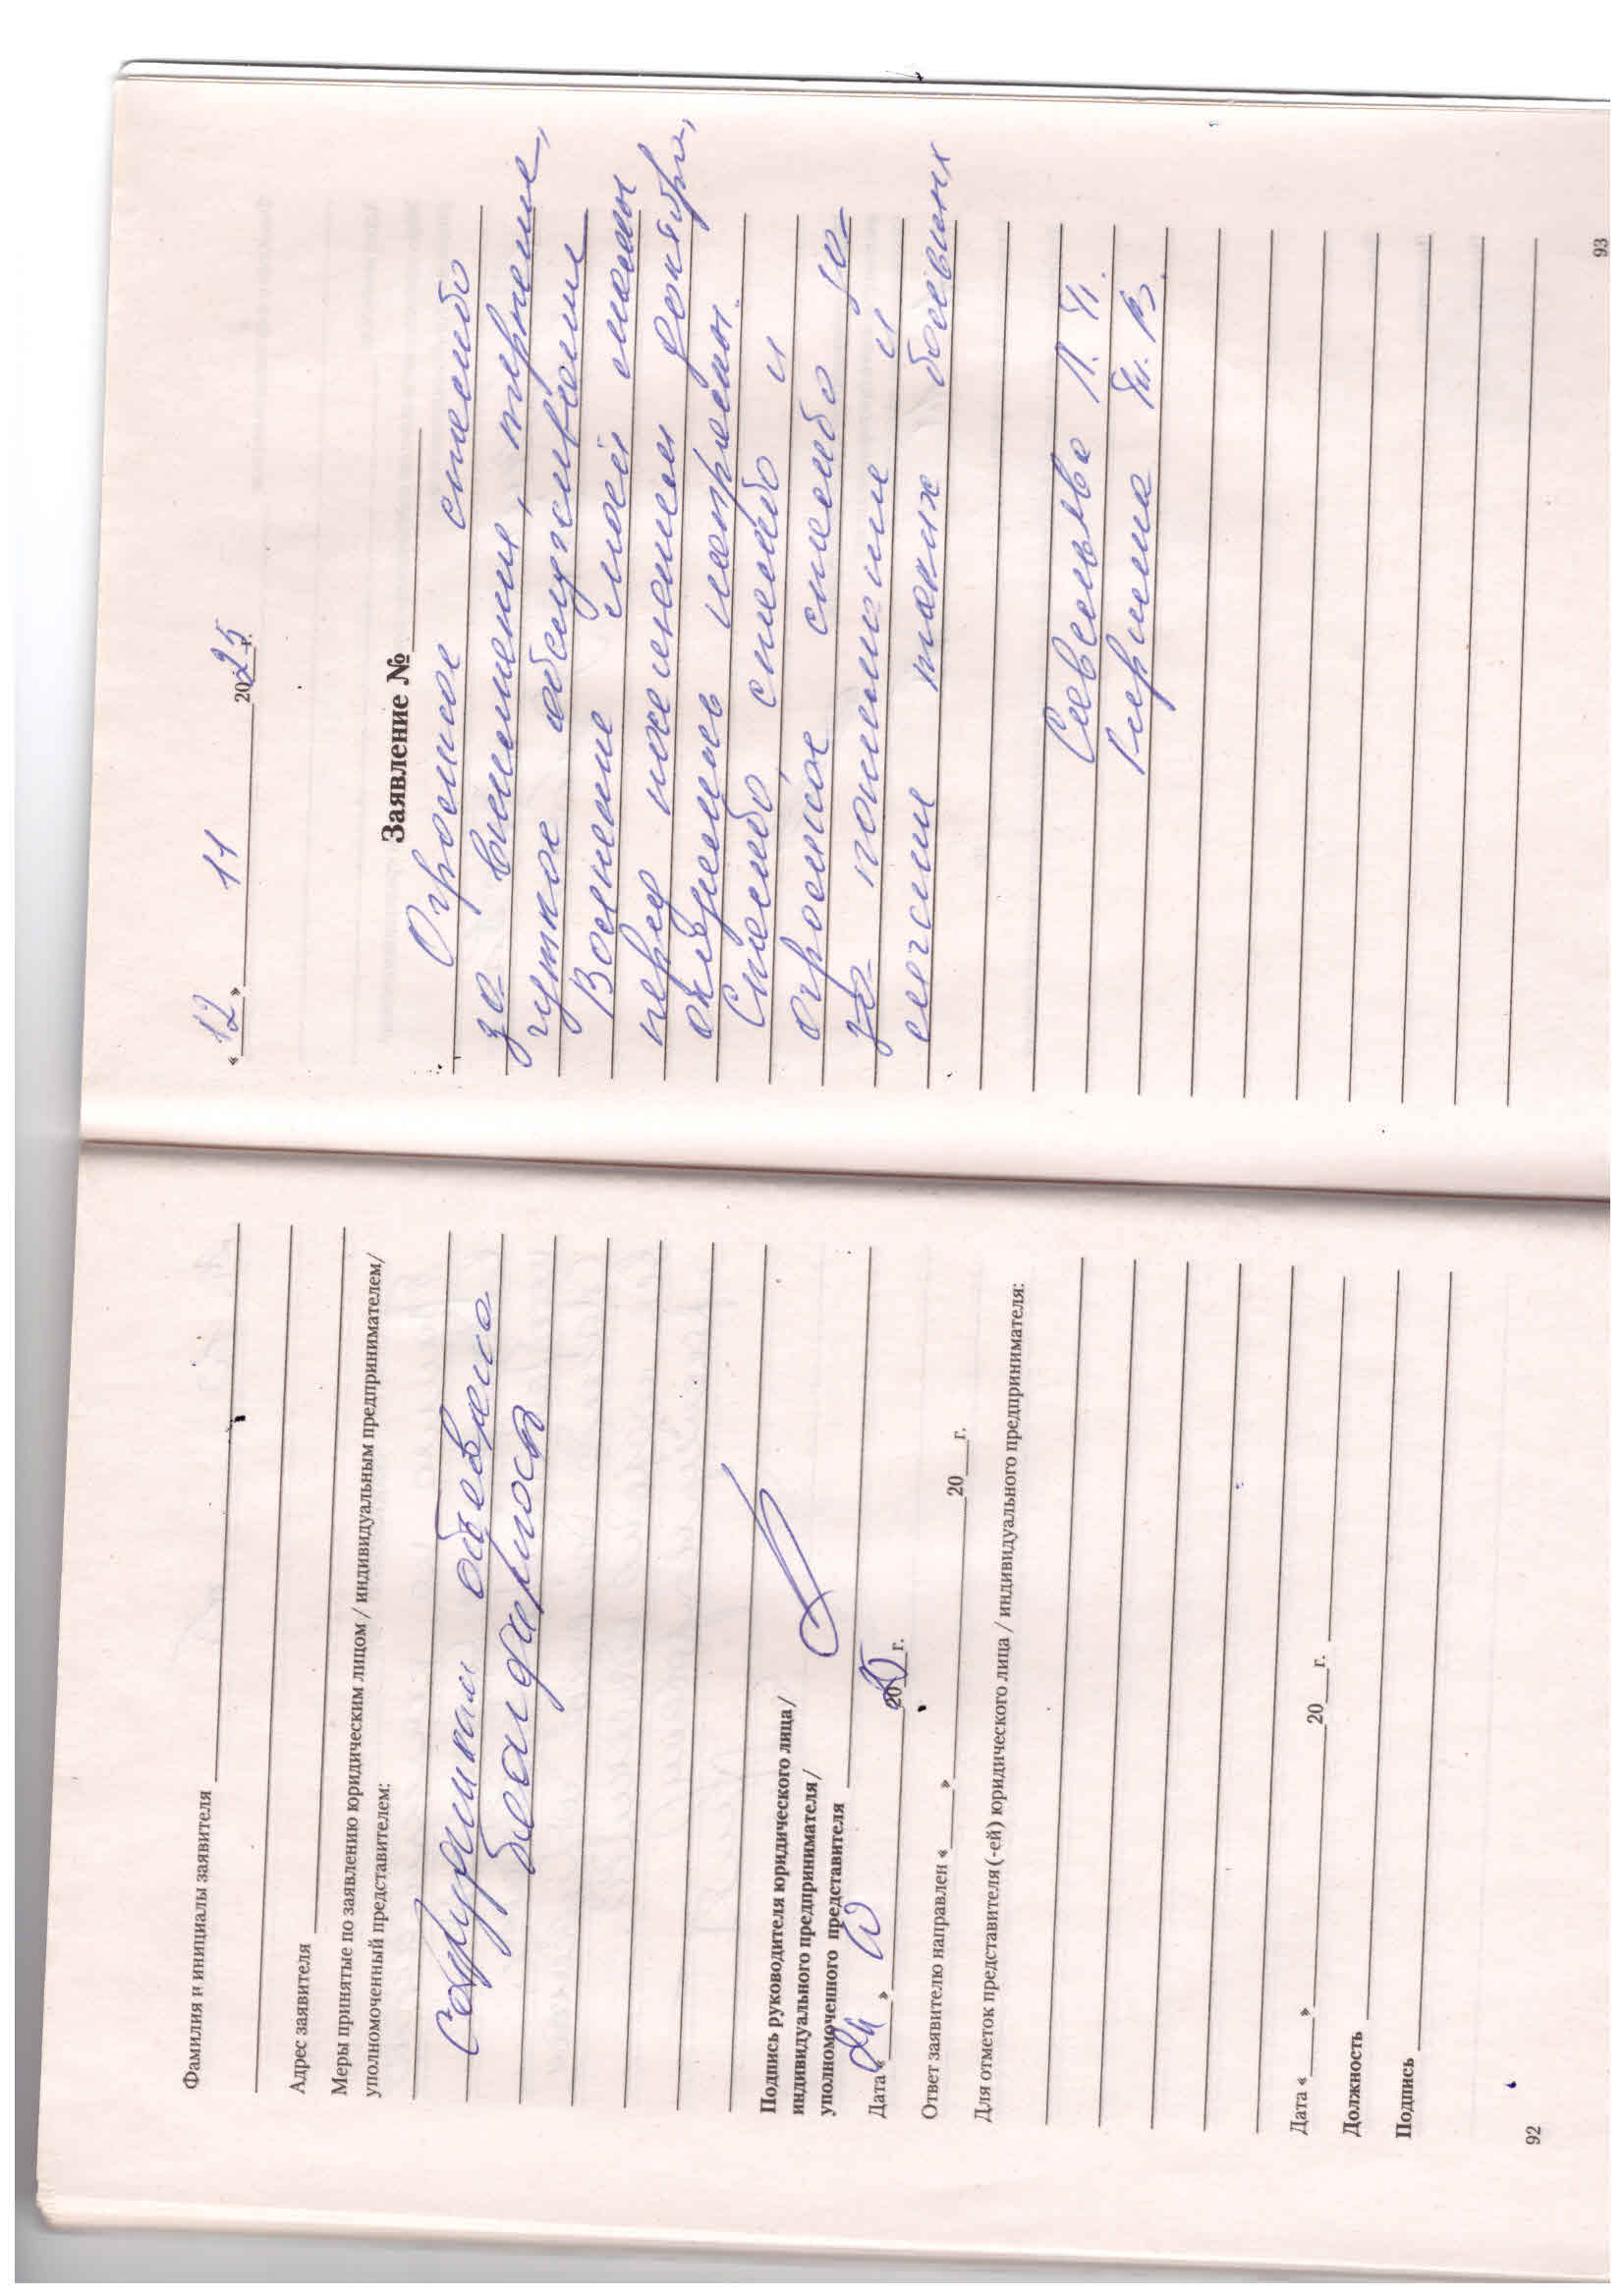 Фамилия и инициалы заявителя
Адрес заявителя
Меры принятые по заявлению юридическим лицом / индивидуальным предпринимателем/
уполномоченный представителем:
Сотрудникам объявлена
благодарность
Подпись руководителя юридического лица/
индивидуального предпринимателя/
уполномоченного представителя
Дата « » 20 г.
Ответ заявителю направлен « » 20 г.
Для отметок представителя(-ей) юридического лица / индивидуального предпринимателя:
Дата « » 20 г.
Должность
Подпись
92
« 12 » 11 2025 г.
Заявление №
Огромное спасибо
за внимание, терпение,
чуткое обслуживание
Волнение моей мамы
перед посещением доктора,
оказались напрасны.
Спасибо, спасибо и
огромное спасибо за
за понимание и
легание таких больных
Савельева Л. П.
Ларина В.
93